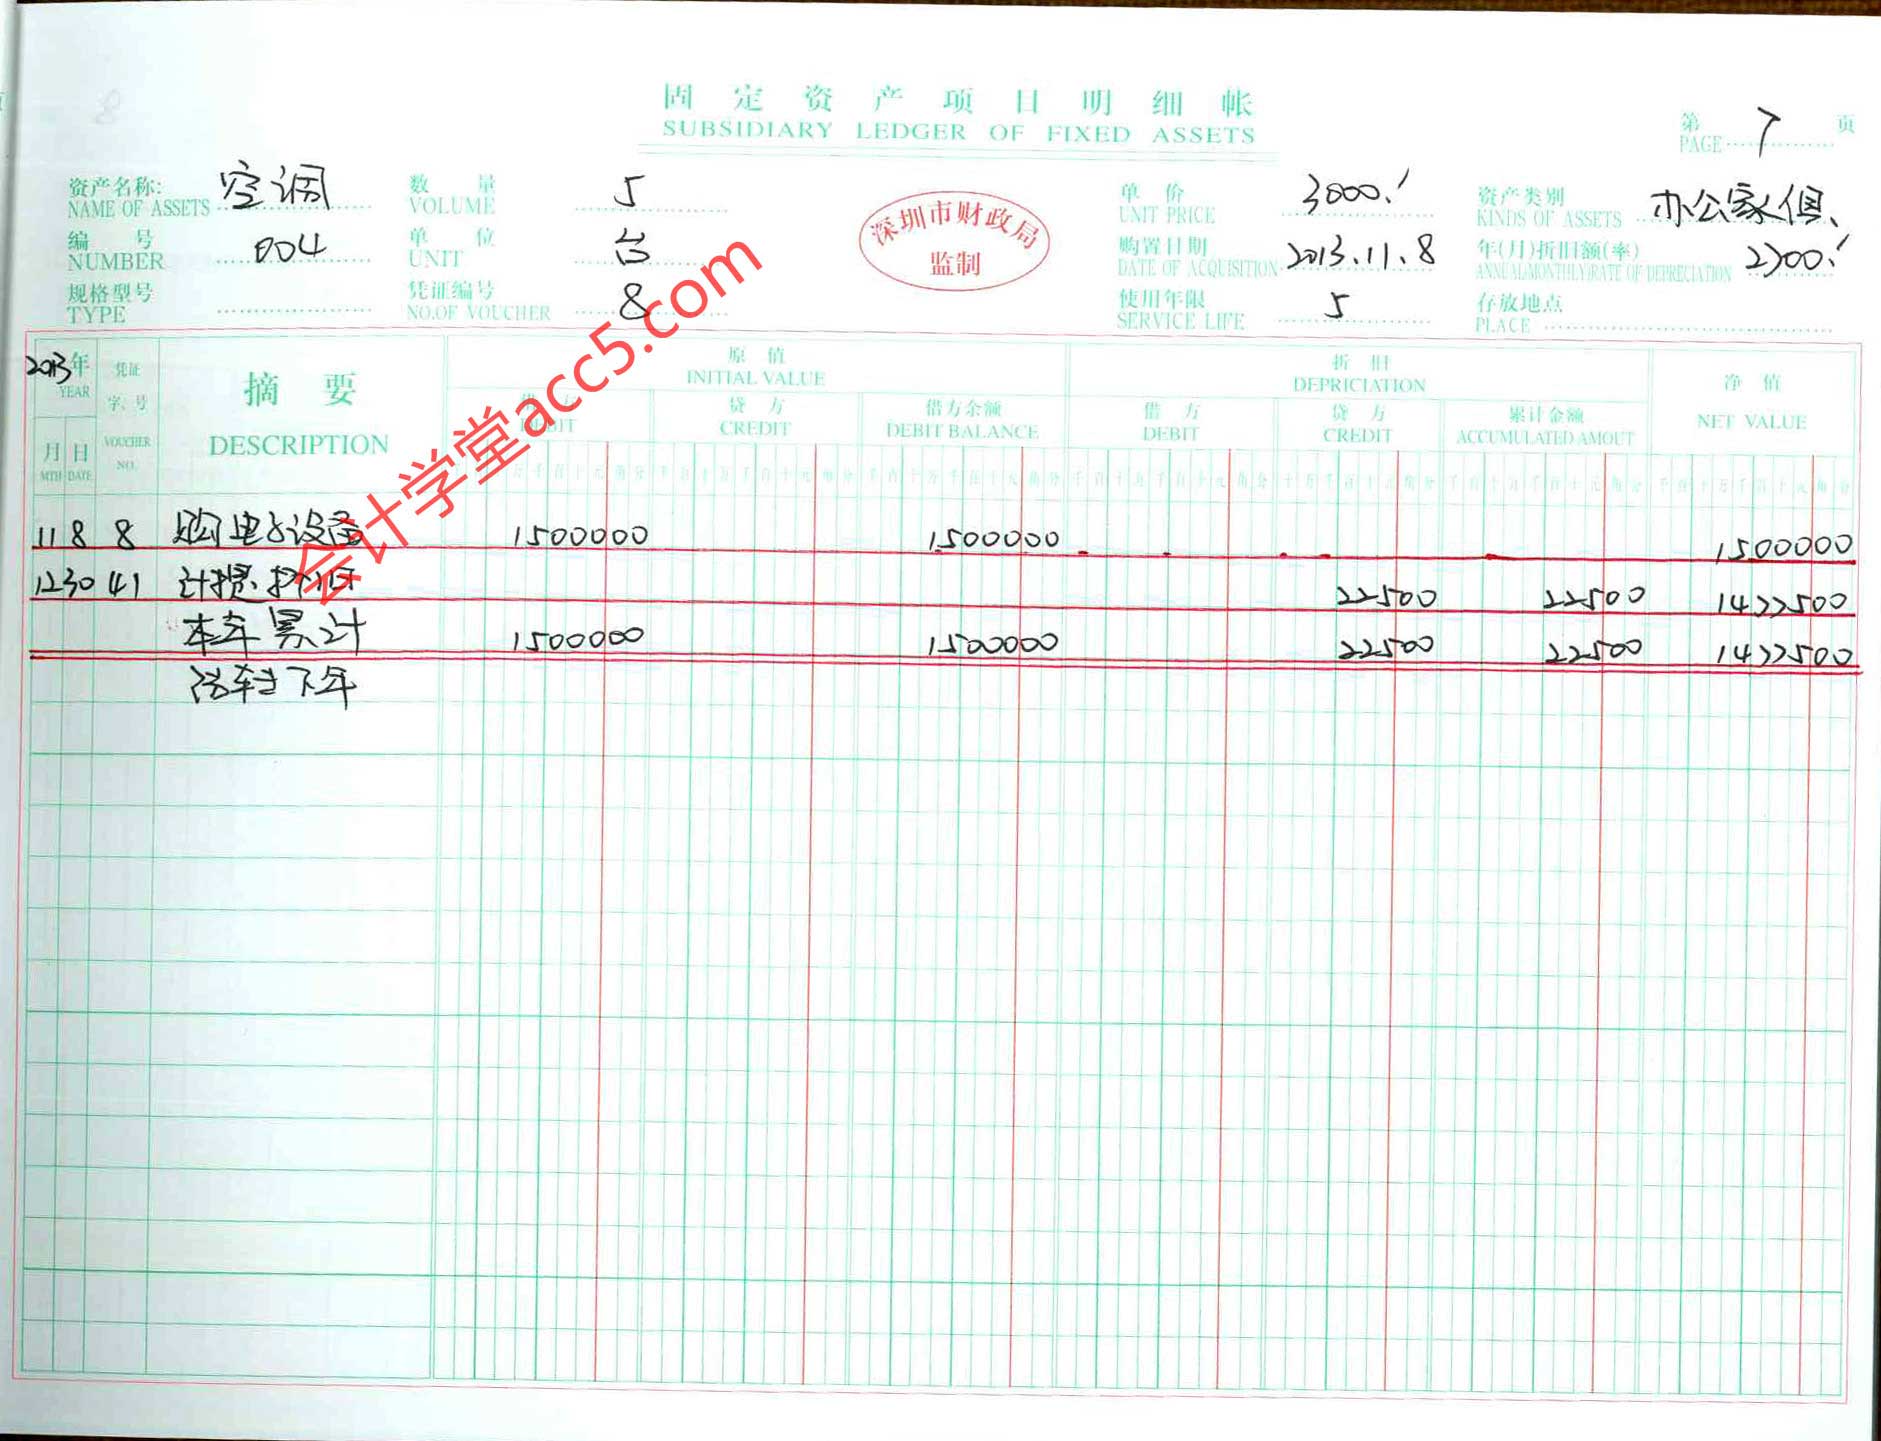 固定资产项目明细帐
SUBSIDIARY LEDGER OF FIXED ASSETS
第 7 页
PAGE
资产名称: 空调 数量 5 单价 3000.- 资产类别 办公家俱
NAME OF ASSETS VOLUME UNIT PRICE KINDS OF ASSETS
深圳市财政局
监制
编号 004 单位 台 购置日期 2013.11.8 年(月)折旧额(率) 2700.-
NUMBER UNIT DATE OF ACQUISITION ANNUAL(MONTHLY)RATE OF DEPRECIATION
规格型号 凭证编号 8 使用年限 5 存放地点
TYPE NO.OF VOUCHER SERVICE LIFE PLACE
2013年 凭证 摘要 原值 折旧 净值
YEAR 字、号 DESCRIPTION INITIAL VALUE DEPRICIATION NET VALUE
月 日 VOUCHER 借方 贷方 借方余额 借方 贷方 累计金额
MTH DATE NO. DEBIT CREDIT DEBIT BALANCE DEBIT CREDIT ACCUMULATED AMOUT
11 8 8 购电子设备 1500000 1500000 1500000
12 30 41 计提折旧 22500 22500 1477500
本年累计 1500000 1500000 22500 22500 1477500
结转下年
会计学堂acc5.com